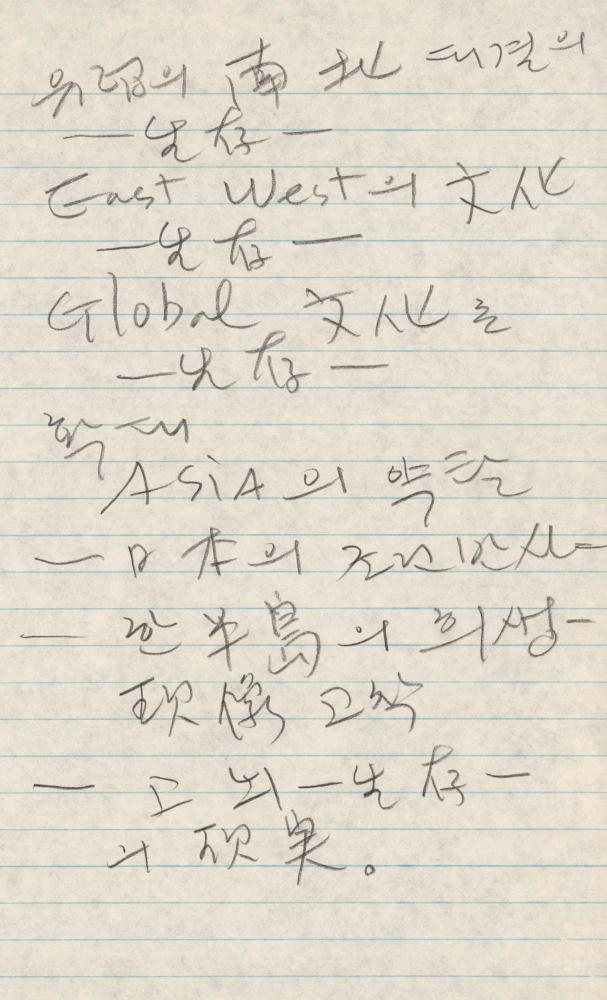 위험의 南北 대결의
— 生存 —
East West의 文化
— 生存 —
Global 文化를
— 生存 —
확대
ASiA의 약탈
— 日本의
— 한半島의 희생 —
現像 고착
— 고뇌 — 生存 —
의 現実。